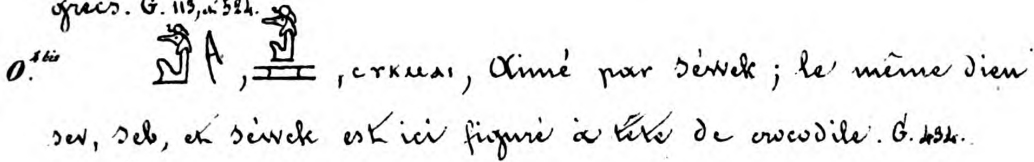 grecs. G. 113, et 524.
O. 4 bis , , ⲥⲩⲕⲙⲁⲓ, Aimé par Séwek ; le même dieu
sev, seb, et séwek est ici figuré à tête de crocodile. G. 434.